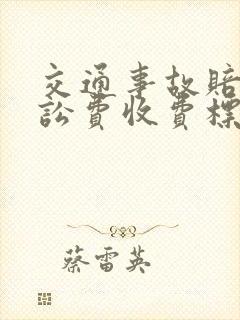 交通事故賠
訟費收費標
蔡雷英